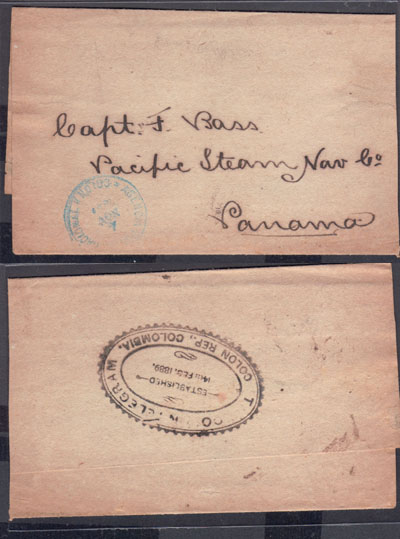 Capt. F. Bass
Pacific Steam Nav Co
Panama
COLON TELEGRAM
COLON REP., COLOMBIA.
ESTABLISHED
14TH FEB. 1889.